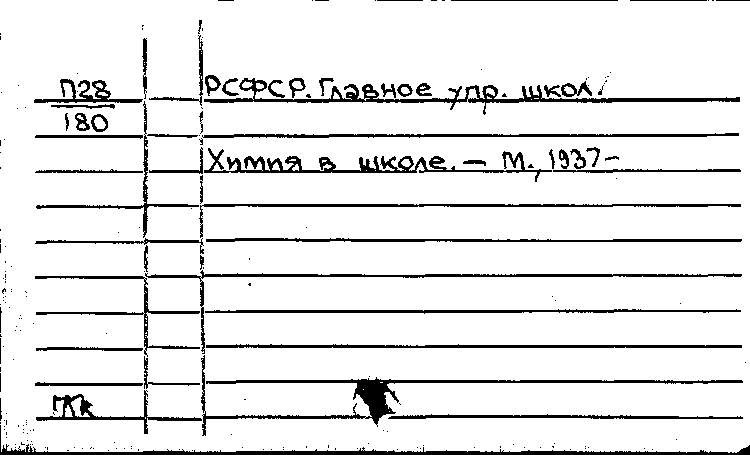 П28 РСФСР. Главное упр. школ.
180
Химия в школе. — М., 1937-
ГКк